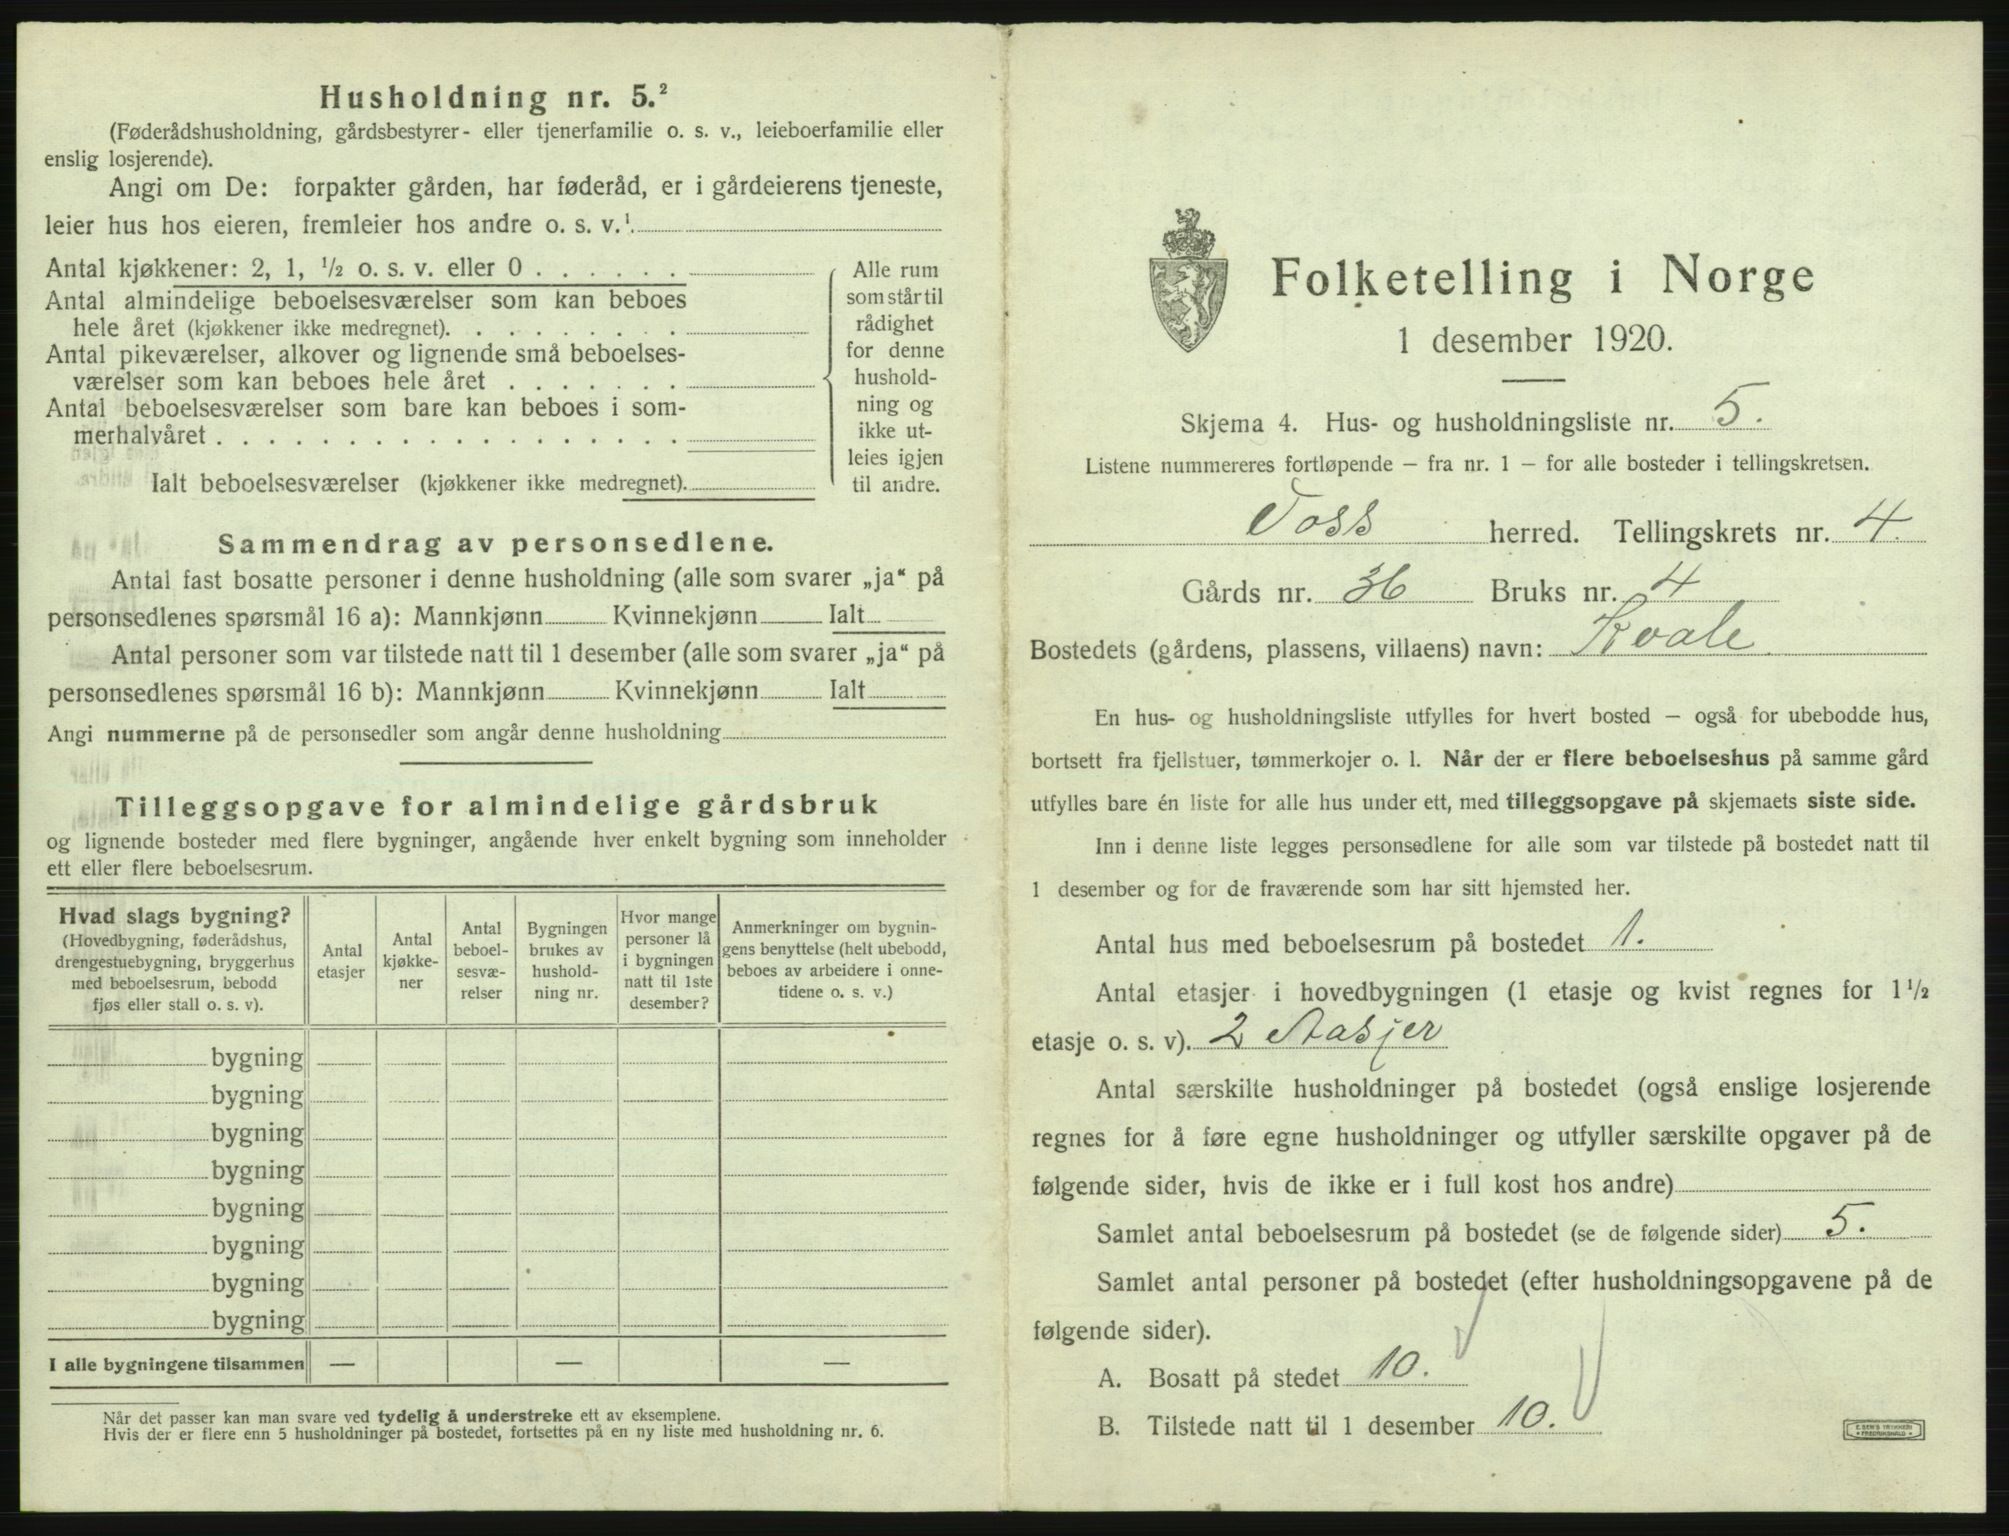 Husholdning nr. 5.²
(Føderådshusholdning, gårdsbestyrer- eller tjenerfamilie o. s. v., leieboerfamilie eller
enslig losjerende).
Angi om De: forpakter gården, har føderåd, er i gårdeierens tjeneste,
leier hus hos eieren, fremleier hos andre o. s. v.¹
Antal kjøkkener: 2, 1, ½ o. s. v. eller 0
Antal almindelige beboelsesværelser som kan beboes
hele året (kjøkkener ikke medregnet).
Antal pikeværelser, alkover og lignende små beboelses-
værelser som kan beboes hele året
Antal beboelsesværelser som bare kan beboes i som-
merhalvåret
Ialt beboelsesværelser (kjøkkener ikke medregnet).
Alle rum
som står til
rådighet
for denne
hushold-
ning og
ikke ut-
leies igjen
til andre.
Sammendrag av personsedlene.
Antal fast bosatte personer i denne husholdning (alle som svarer „ja“ på
personsedlenes spørsmål 16 a): Mannkjønn Kvinnekjønn Ialt
Antal personer som var tilstede natt til 1 desember (alle som svarer „ja“ på
personsedlenes spørsmål 16 b): Mannkjønn Kvinnekjønn Ialt
Angi nummerne på de personsedler som angår denne husholdning
Tilleggsopgave for almindelige gårdsbruk
og lignende bosteder med flere bygninger, angående hver enkelt bygning som inneholder
ett eller flere beboelsesrum.
Hvad slags bygning?
(Hovedbygning, føderådshus,
drengestuebygning, bryggerhus
med beboelsesrum, bebodd
fjøs eller stall o. s. v).
Antal
etasjer
Antal
kjøkke-
ner
Antal
beboel-
sesvæ-
relser
Bygningen
brukes av
hushold-
ning nr.
Hvor mange
personer lå
i bygningen
natt til 1ste
desember?
Anmerkninger om bygnin-
gens benyttelse (helt ubebodd,
beboes av arbeidere i onne-
tidene o. s. v.)
bygning
bygning
bygning
bygning
bygning
bygning
bygning
bygning
I alle bygningene tilsammen — — —
Når det passer kan man svare ved tydelig å understreke ett av eksemplene.
Hvis der er flere enn 5 husholdninger på bostedet, fortsettes på en ny liste med husholdning nr. 6.
Folketelling i Norge
1 desember 1920.
Skjema 4. Hus- og husholdningsliste nr. 5.
Listene nummereres fortløpende – fra nr. 1 – for alle bosteder i tellingskretsen.
Voss herred. Tellingskrets nr. 4.
Gårds nr. 36 Bruks nr. 4
Bostedets (gårdens, plassens, villaens) navn: Kvale
En hus- og husholdningsliste utfylles for hvert bosted – også for ubebodde hus,
bortsett fra fjellstuer, tømmerkojer o. l. Når der er flere beboelseshus på samme gård
utfylles bare én liste for alle hus under ett, med tilleggsopgave på skjemaets siste side.
Inn i denne liste legges personsedlene for alle som var tilstede på bostedet natt til
1 desember og for de fraværende som har sitt hjemsted her.
Antal hus med beboelsesrum på bostedet 1.
Antal etasjer i hovedbygningen (1 etasje og kvist regnes for 1½
etasje o. s. v). 2 Etasjer
Antal særskilte husholdninger på bostedet (også enslige losjerende
regnes for å føre egne husholdninger og utfyller særskilte opgaver på de
følgende sider, hvis de ikke er i full kost hos andre)
Samlet antal beboelsesrum på bostedet (se de følgende sider) 5.
Samlet antal personer på bostedet (efter husholdningsopgavene på de
følgende sider).
A. Bosatt på stedet 10.
B. Tilstede natt til 1 desember 10.